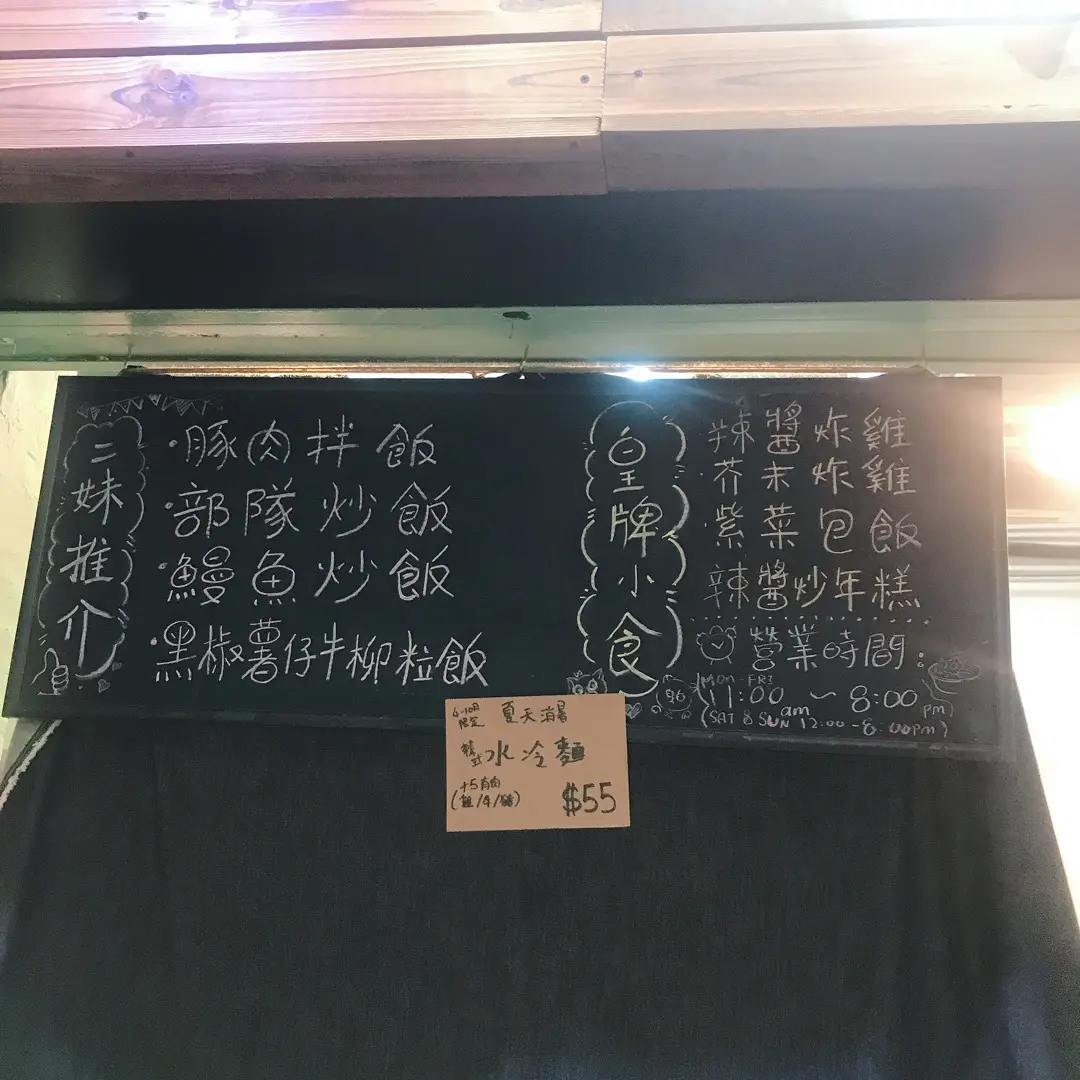 二妹推介
·豚肉拌飯
·部隊炒飯
·鰻魚炒飯
·黑椒薯仔牛柳粒飯
皇牌小食
·辣醬炸雞
·芥末炸雞
·紫菜包飯
辣醬炒年糕
營業時間:
MON-FRI
11:00am ~ 8:00pm
(SAT & SUN 12:00-8:00pm)
6-10月限定
夏天消暑
韓式水冷麵
+5有肉
$55